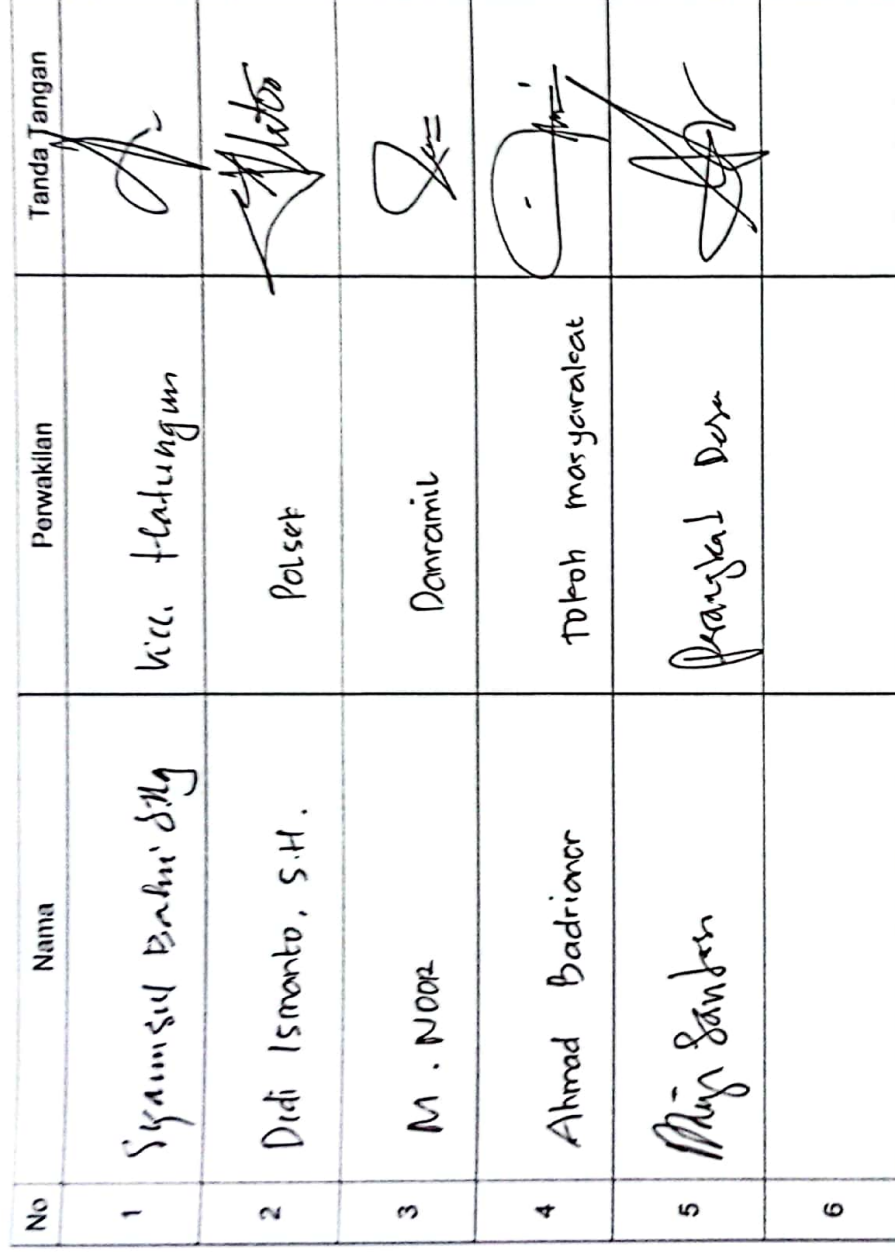 No Nama Perwakilan Tanda Tangan
1 Syamsul Bahri Kec. Hatungun
2 Didi Ismanto, S.H. Polsek
3 M. NOOR Danramil
4 Ahmad Badrianor Tokoh masyarakat
5 Santosn Perangkat Desa
6